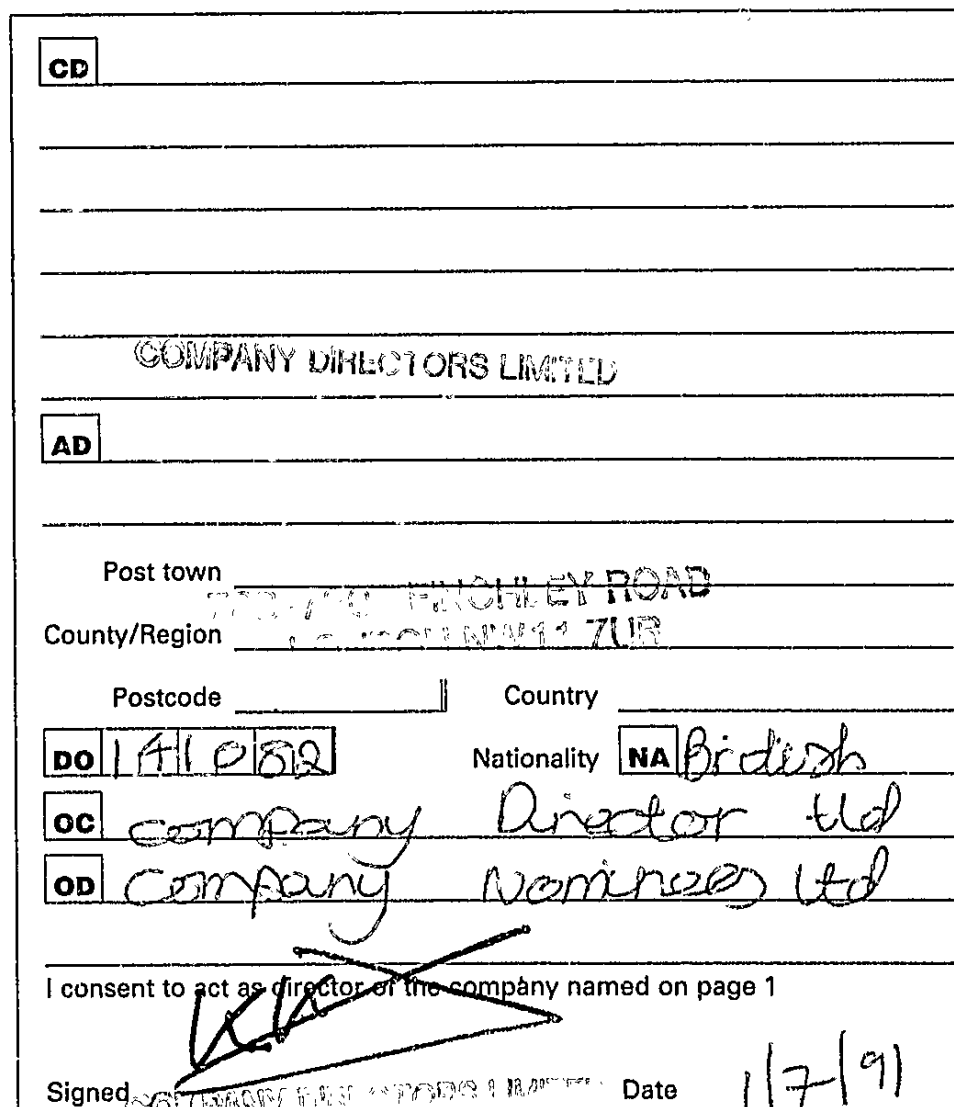 CD
COMPANY DIRECTORS LIMITED
AD
Post town
FINCHLEY ROAD
County/Region NW11 7UR
Postcode Country
DO 141082 Nationality NA British
OC Company Director Ltd
OD Company Nominees Ltd
I consent to act as director of the company named on page 1
Signed COMPANY DIRECTORS LIMITED Date 1/7/91